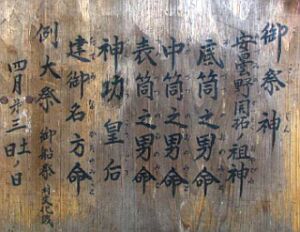 御祭神
安曇野開拓祖神
底筒之男命
中筒之男命
表筒之男命
神功皇后
建御名方命
例大祭 御船祭
四月廿三日
土ノ日